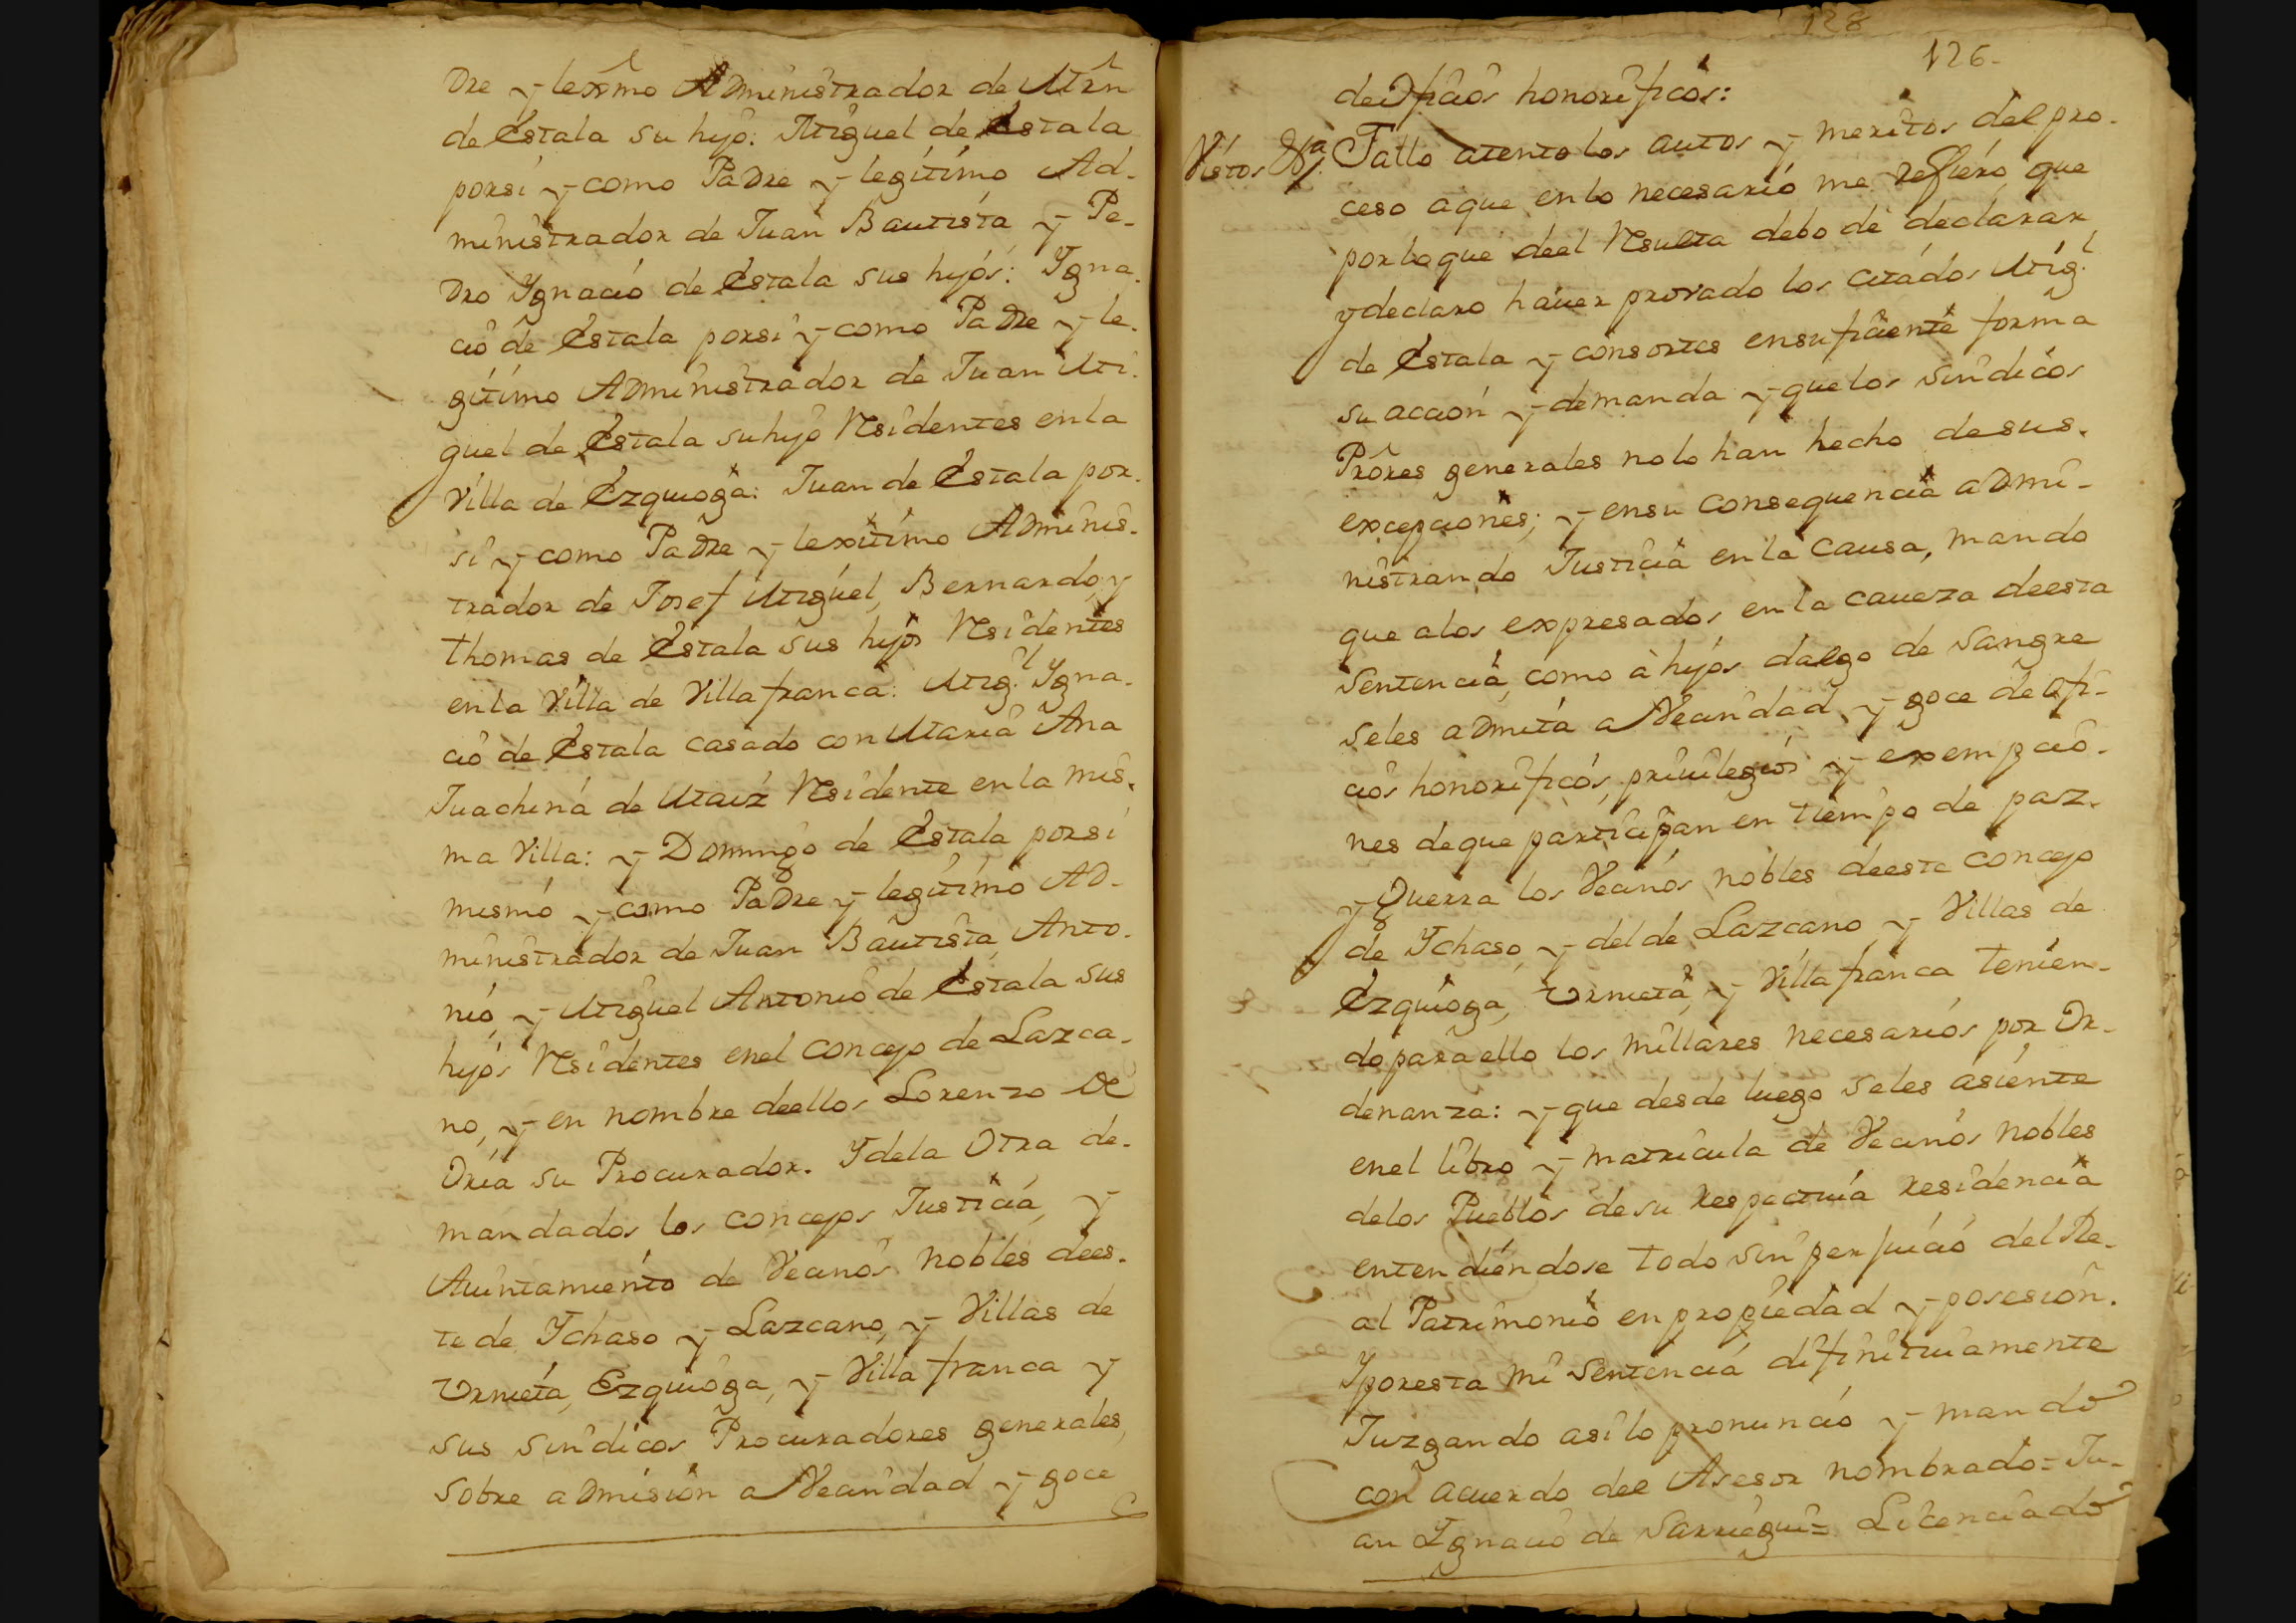 Dre y lexmo Administrador de Mrn
de Estala su hijo: Miguel de Estala
porsi y como Padre y legitimo Ad-
ministrador de Juan Bautista y Pe-
dro Ygnacio de Estala sus hijos: Ygna-
cio de Estala porsi y como Padre y le-
gitimo Administrador de Juan Mi-
guel de Estala su hijo Residentes en la
Villa de Ezquioga: Juan de Estala por-
si y como Padre y lexitimo Adminis-
trador de Josef Miguel, Bernardo, y
Thomas de Estala sus hijos Residentes
en la Villa de Villafranca: Migl. Ygna-
cio de Estala casado con Maria Ana
Juachina de Maiz Residente en la mis-
ma Villa: y Domingo de Estala porsi
mismo y como Padre y legitimo Ad-
ministrador de Juan Bautista, Anto-
nio, y Miguel Antonio de Estala sus
hijos Residentes enel concejo de Lazca-
no, y en nombre deellos Lorenzo de
Oria su Procurador. Ydela Otra de-
mandados los concejos Justicia, y
Auintamiento de Vecinos nobles dees-
te de Ychaso y Lazcano, y Villas de
Urnieta, Ezquioga, y Villafranca y
sus Sindicos Procuradores generales,
sobre admision a Vecindad y goce
128
126.
de Oficios honorificos:
Vistos Fallo atento los autos y meritos del pro-
ceso aque enlo necesario me refiero, que
porloque deel Resulta debo de declarar
y declaro hauer provado los citados Migl.
de Estala y consortes ensuficiente forma
su accion y demanda y quelos Sindicos
Prōres generales nolo han hecho desus
excepciones; y ensu consequencia admi-
nistrando Justicia en la causa, mando
que alos expresados en la caveza deesta
Sentencia, como à hijos dalgo de Sangre
seles admita a Vecindad y goce de ofi-
cios honorificos, privilegios y exempcio-
nes deque participan en tiempo de paz
y Guerra los Vecinos nobles deeste concejo
de Ychaso, y del de Lazcano y Villas de
Ezquioga, Urnieta, y Villafranca tenien-
do paraello los millares necesarios por Or-
denanza: y que desde luego seles asiente
enel libro y matricula de Vecinos nobles
delos Pueblos desu respectiva residencia
entendiendose todo sin perjuicio del Re-
al Patrimonio en propiedad y posesion.
Yporesta mi Sentencia difinitivamente
Juzgando asilo pronuncio y mando
con acuerdo del Asesor nombrado = Ju-
an Ygnacio de Sarriegui = Licenciado